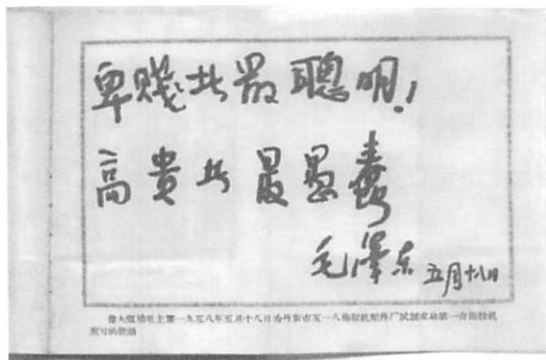 卑贱者最聪明!
高贵者最愚蠢
毛泽东 五月十八日
伟大领袖毛主席一九五八年五月十八日为丹东市五一八拖拉机配件厂试制成功第一台拖拉机